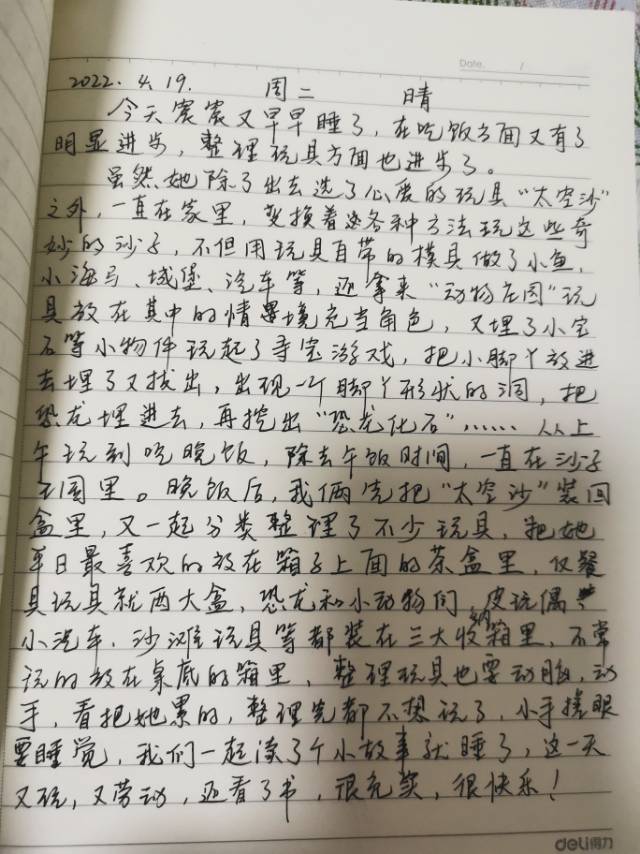 Date. /
2022.4.19. 周二 晴
今天宸宸又早早睡了，在吃饭方面又有了
明显进步，整理玩具方面也进步了。
虽然她除了出去选了心爱的玩具“太空沙”
之外，一直在家里，变换着各种方法玩这些奇
妙的沙子，不但用玩具自带的模具做了小鱼、
小海马、城堡、汽车等，还拿来“动物庄园”玩
具放在其中的情景填充当角色，又埋了小宝
石等小物件玩起了寻宝游戏，把小脚丫放进
去埋了又拔出，出现一个脚丫形状的洞，把
恐龙埋进去，再挖出“恐龙化石”……从上
午玩到吃晚饭，除去午饭时间，一直在沙子
王国里。晚饭后，我俩先把“太空沙”装回
盒里，又一起分类整理了不少玩具，把她
平日最喜欢的放在箱子上面的茶盒里，仅餐
具玩具就两大盒，恐龙和小动物们，皮玩偶、
小汽车、沙滩玩具等都装在三大收纳箱里，不常
玩的放在桌底的箱里，整理玩具也要动脑，动
手，看把她累的，整理完都不想玩了，小手搓眼
要睡觉，我们一起读了个小故事就睡了，这一天
又玩，又劳动，还看了书，很充实，很快乐！
deli得力